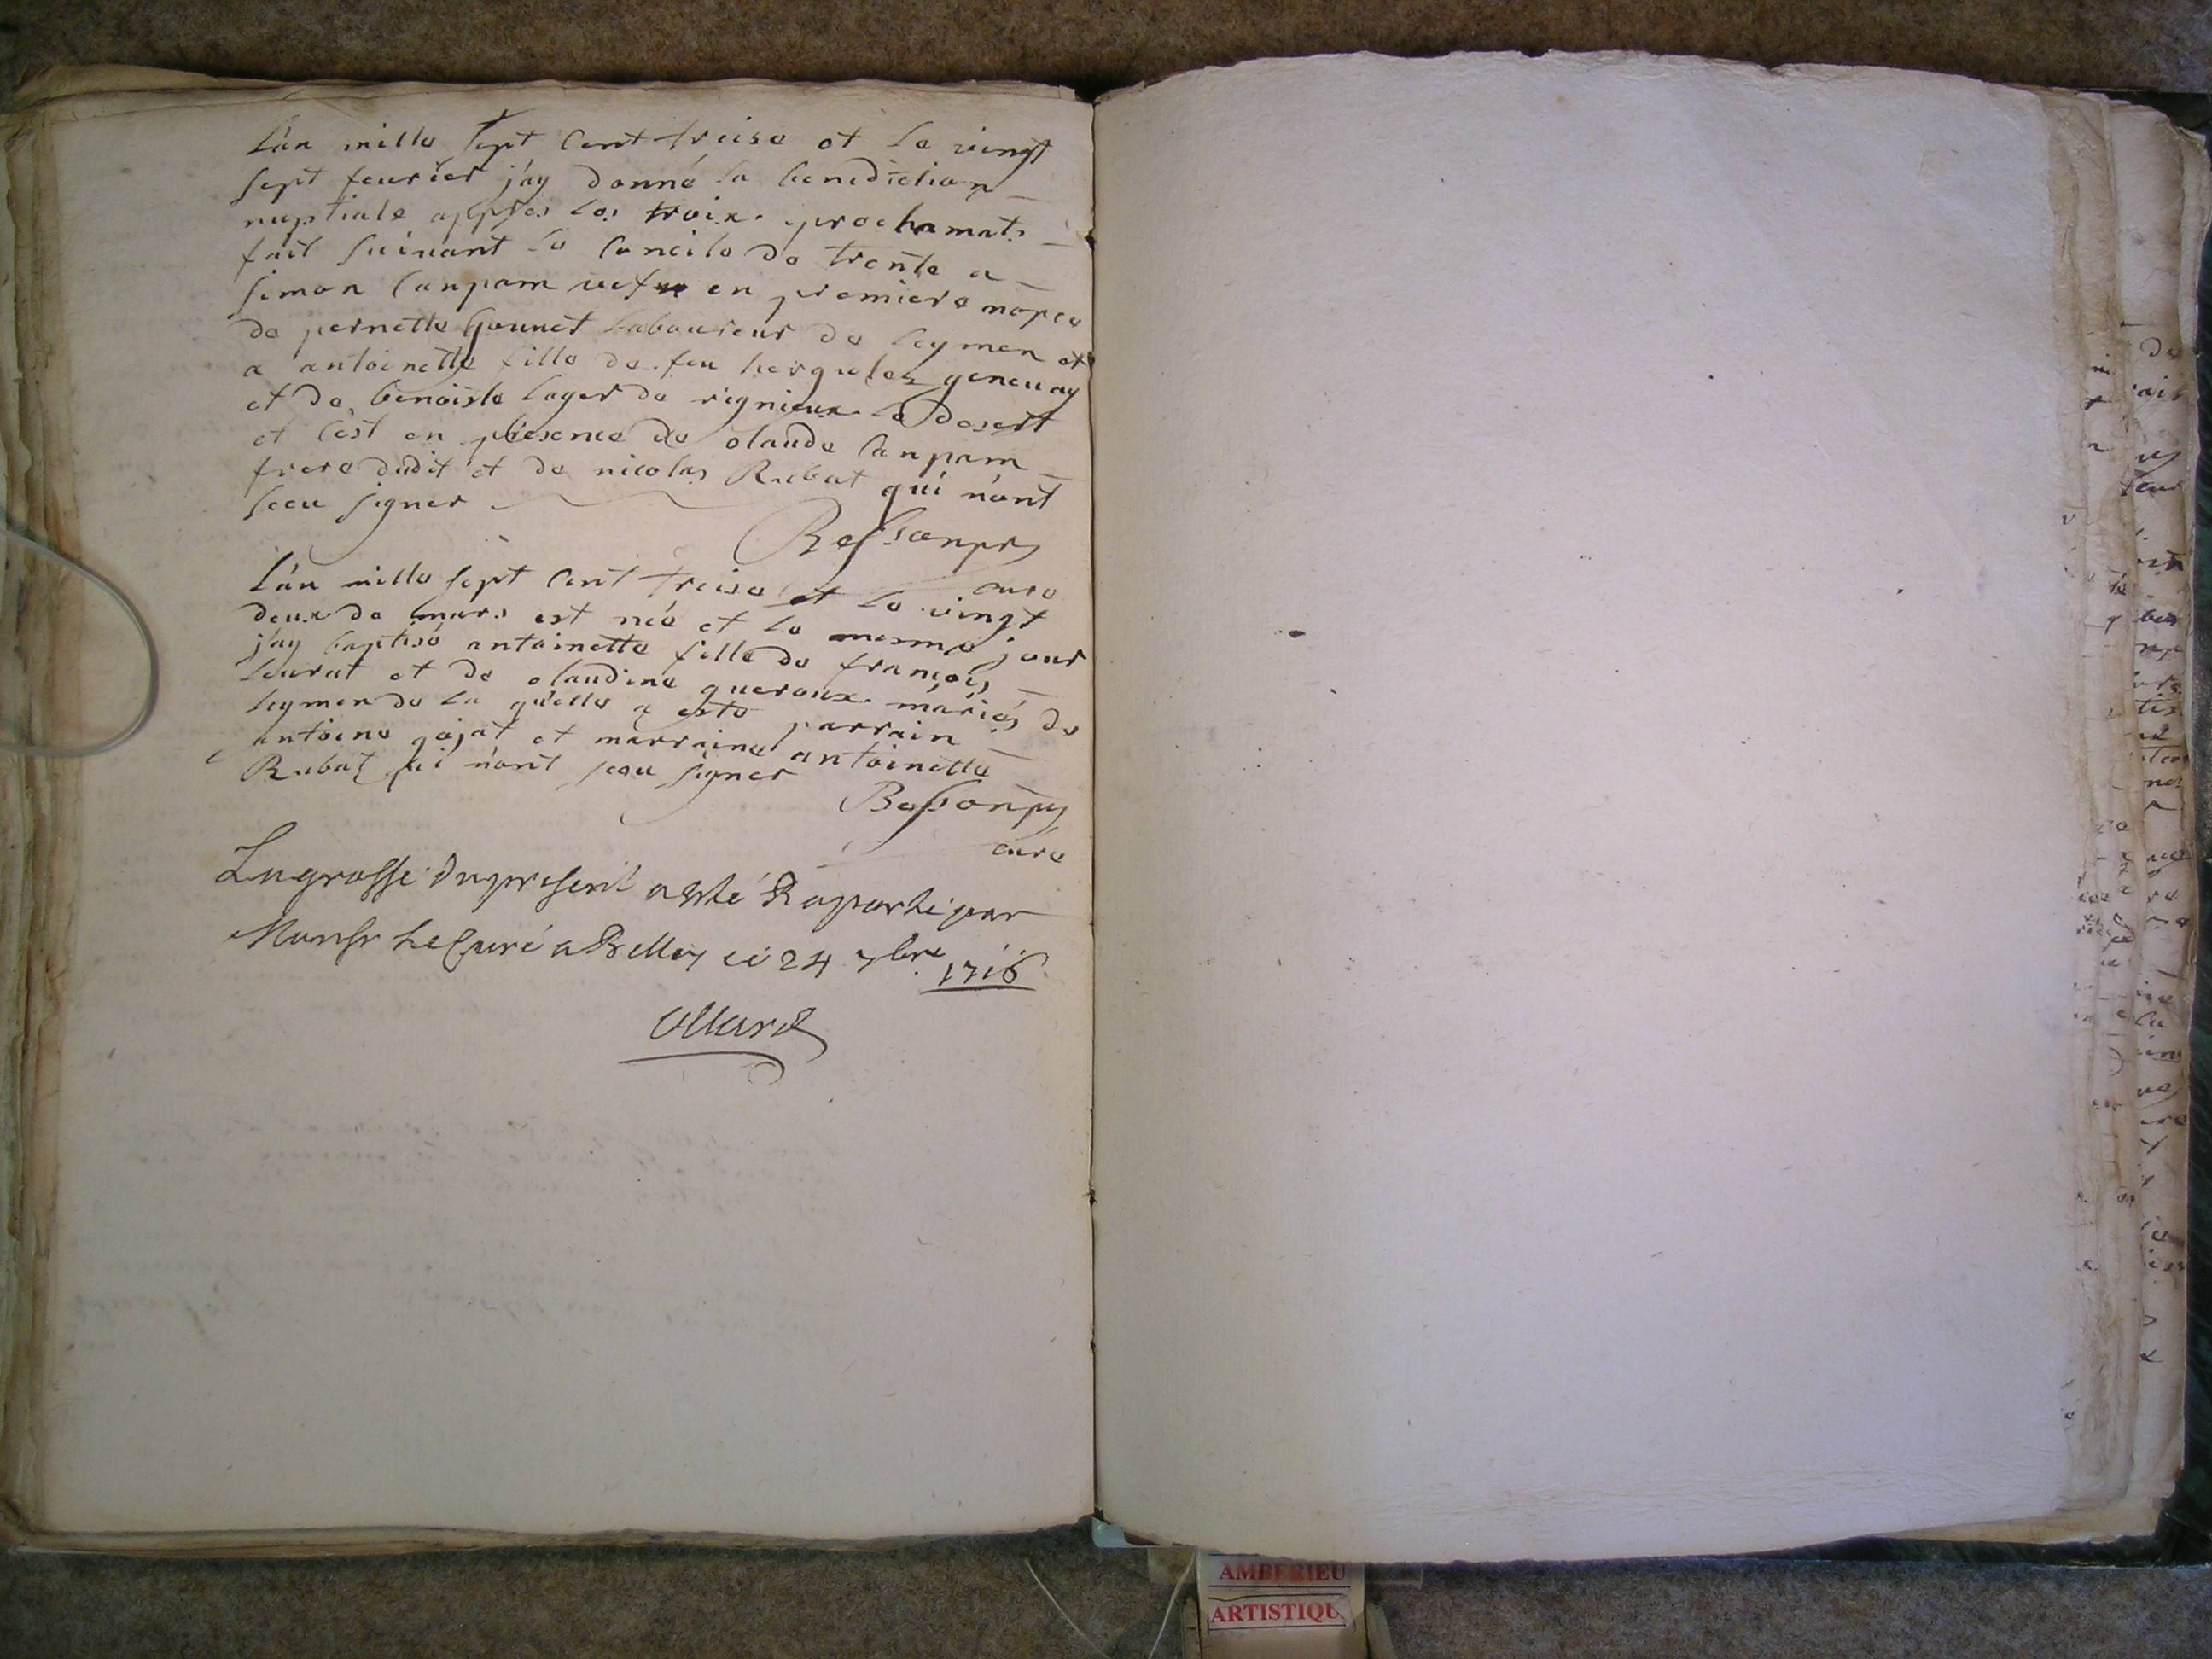 L'an mille sept cent treise et le vingt
sept feurier j'ay donné la benediction
nuptiale appres les troix prochamat.s
fait suiuant le concile de trente a
simon Canpam uefue en premiere nopce
de pernette Gounet laboureur de leymen et
a antoinette fille de feu hergules geneuay
et de benoiste lager de rignieux le desert
et c'est en presence de claude Canpam
frere dudit et de nicolas Rubat qui n'ont
sceu signer
Bessonpr
curé
L'an mille sept cent treise et le vingt
deux de mars est née et le mesme jour
j'ay baptisé antoinette fille de françois
leurat et de claudine queroux mariés de
leymen de la quelle a esté parrain
antoine gojat et marraine antoinette
Rubat qui n'ont sceu signer
Bessonpr
curé
La grosse du present a esté Raporté par
Monsr Le Curé a Belley ce 24 7bre 1716
Allard
AMBERIEU
ARTISTIQU